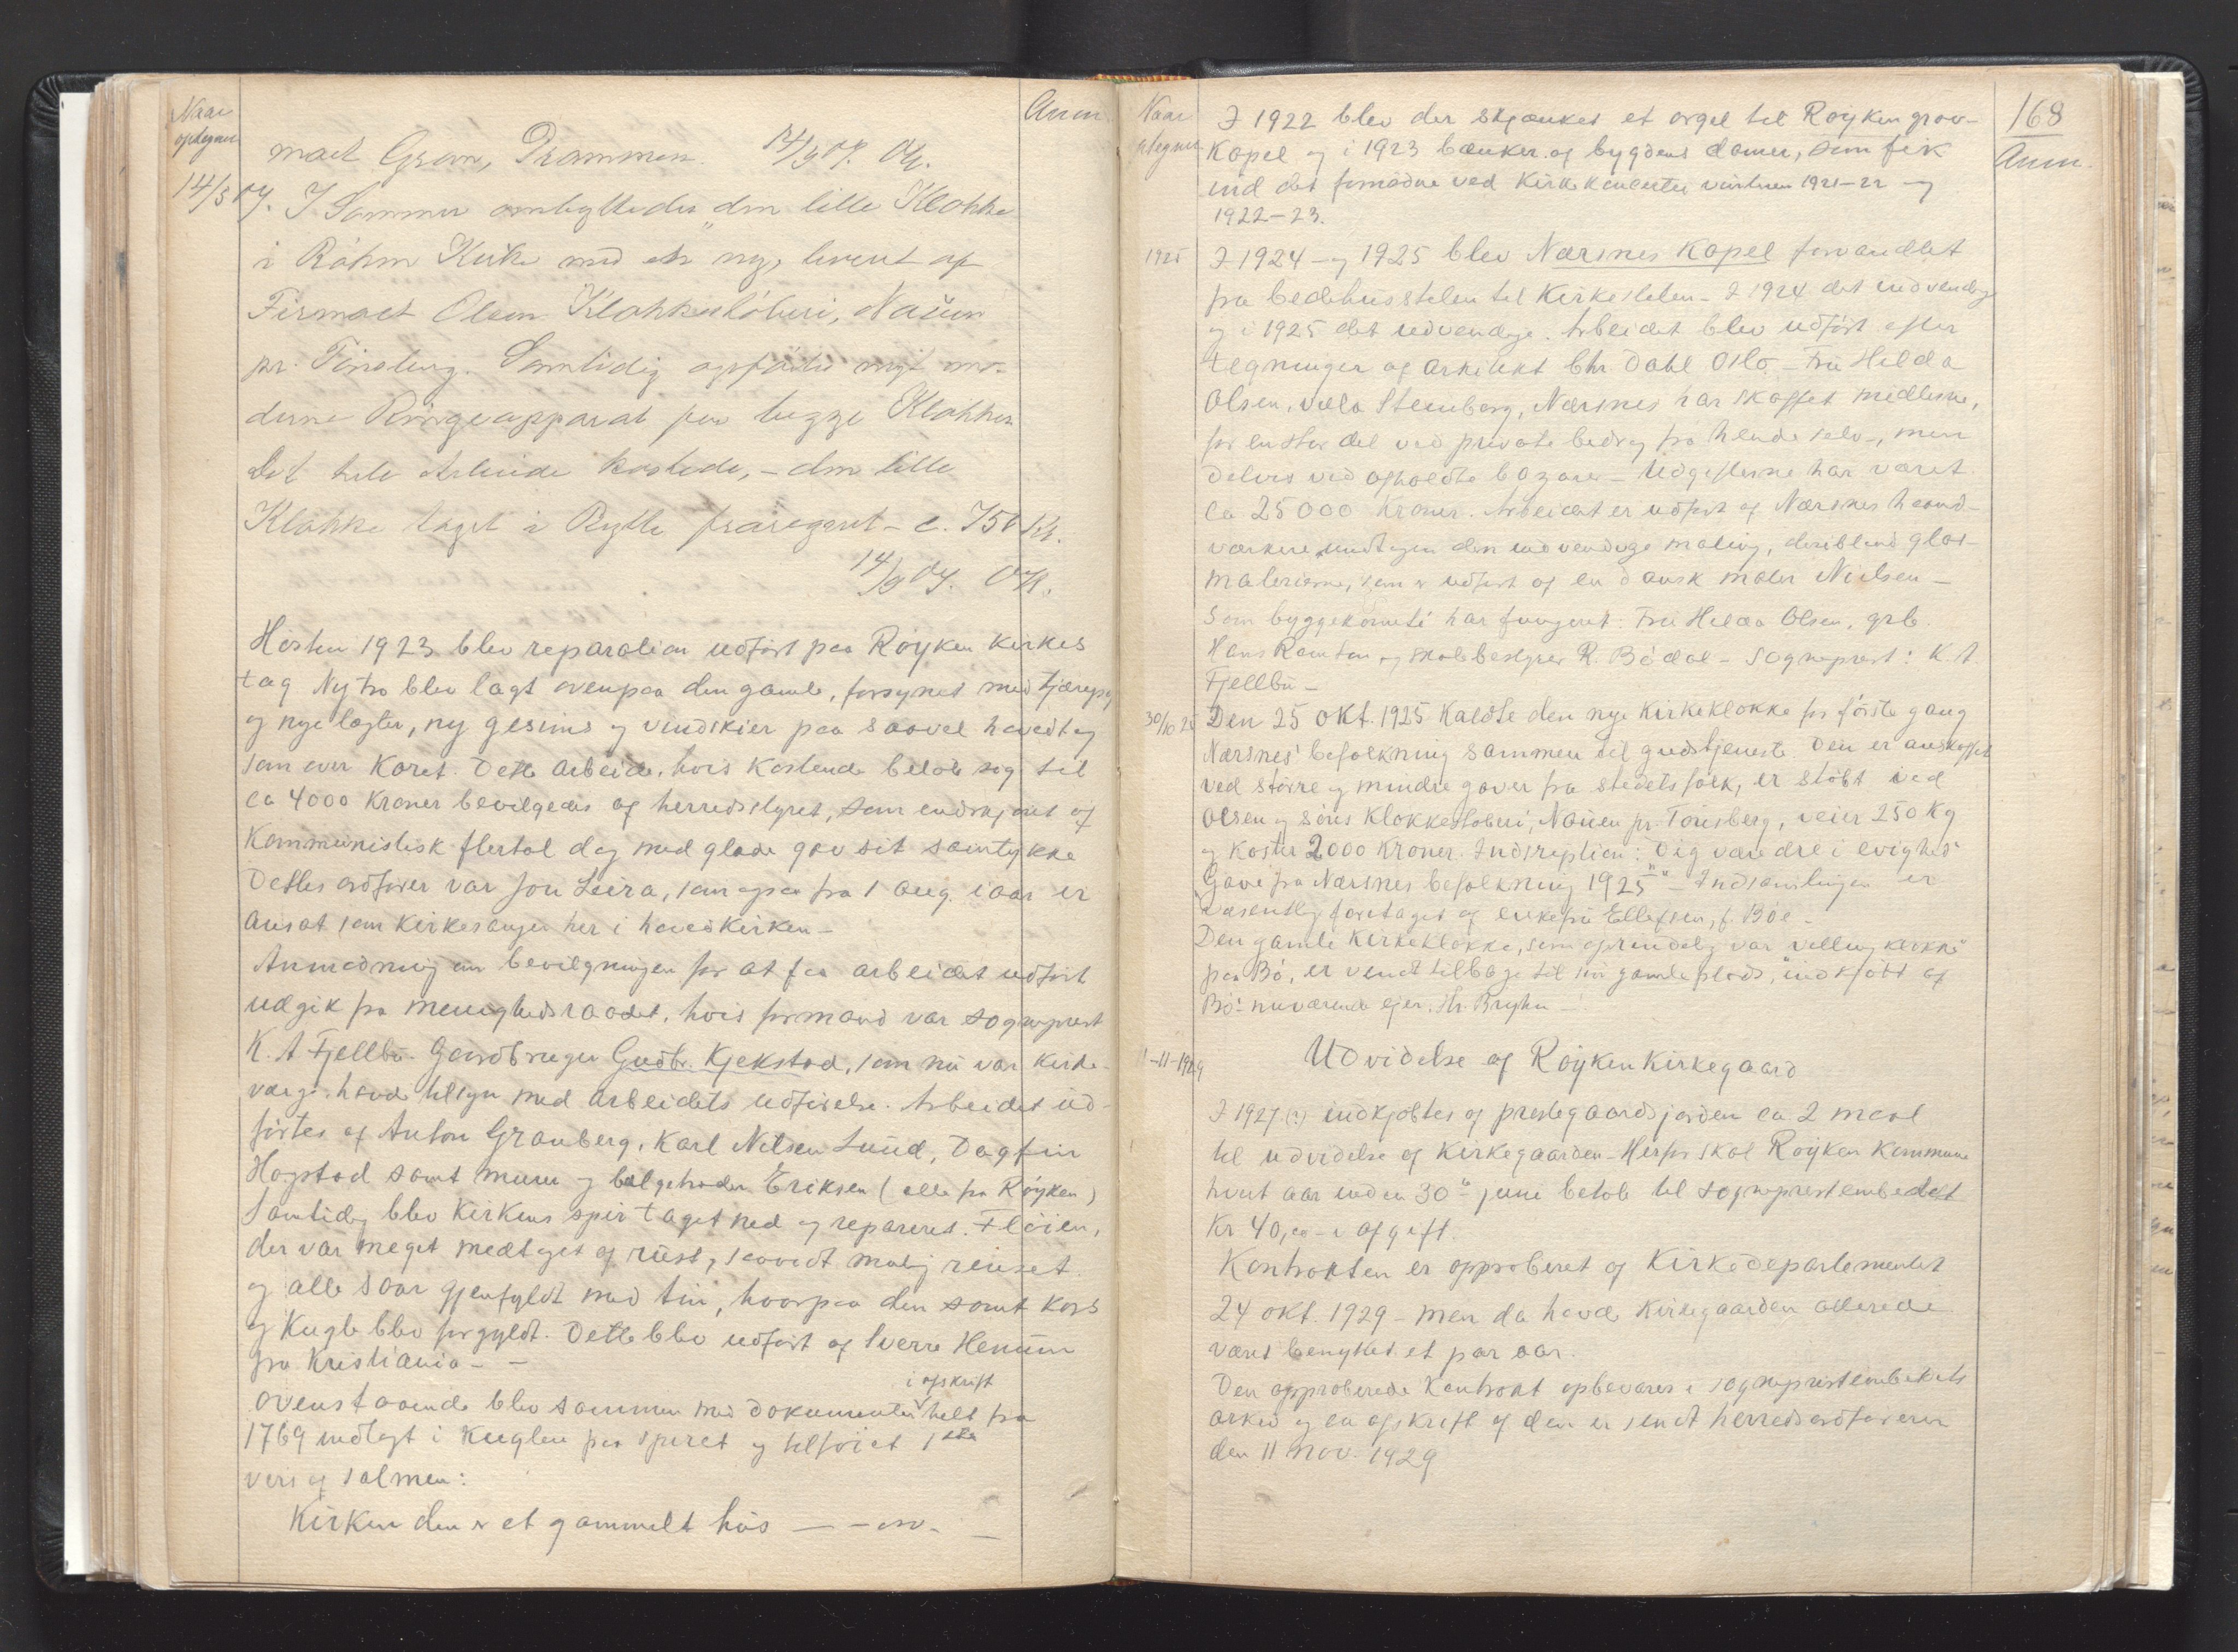 Naar
optegnet
Anm.
maet Gran, Drammen. 14/9 07. OK.
14/9 07. I Sommer ombyttedes den lille Klokke
i Röken Kirke med en ny, leveret af
Firmaet Olsen Klokkestöberi, Nauen
pr. Tönsberg. Samtidig opsattes nyt mo-
derne Ringeapparat for begge Klokker
Det hele Arbeide kostede, – den lille
Klokke taget i Bytte fraregnet – c. 750 Kr.
14/9 07. OK.
Høsten 1923 blev reparation udført paa Røyken kirkes
tag Ny tro blev lagt ovenpaa den gamle, forsynet med tjærepap
og nye lægter, ny gesims og vindskier paa saavel hovedtag
som over koret. Dette arbeide, hvis kostende beløb sig til
ca 4000 kroner bevilgedes af herredsstyret, som endskjønt af
kommunistisk flertal dog med glæde gav sit samtykke
Dettes ordfører var Jon Leira, som ogsaa fra 1 aug. i aar er
ansat som kirkesanger her i hovedkirken –
Anmodning om bevilgningen for at faa arbeidet udført
udgik fra menighedsraadet, hvis formand var sogneprest
K. A Fjellbu. Gaardbruger Gudbr. Kjekstad, som nu var kirke-
værge havde tilsyn med arbeidets udførelse. Arbeidet ud-
førtes af Anton Granberg, Karl Nilsen Lund, Dagfin
Hogstad samt murer og bælgetræder Eriksen (alle fra Røyken)
Samtidig blev kirkens spir taget ned og repareret. Fløien,
der var meget medtaget af rust, saavidt mulig renset
og alle saar gjenfyldt med tin, hvorpaa den samt kors
og kugle blev forgyldt. Dette blev udført af Sverre Henum
fra Kristiania – –
i afskrift
Ovenstaaende blev sammen med dokumenter helt fra
1769 indlagt i kuglen paa spiret og tilføiet 1ste
vers af salmen:
Kirken den er et gammelt hus – – osv. –
168
Naar
optegnet
Anm.
I 1922 blev der skjænket et orgel til Røyken grav-
kapel og i 1923 bænker af bygdens damer, som fik
ind det fornødne ved kirkekoncerter vinteren 1921–22 og
1922–23.
1925 I 1924 – og 1925 blev Nærsnes kapel forvandlet
fra bedehusstilen til kirkestilen – I 1924 det indvendige
og i 1925 det udvendige. Arbeidet blev udført efter
tegninger af arkitekt Chr. Dahl Oslo – Fru Hilda
Olsen, villa Stenberg, Nærsnes har skaffet midlerne,
for en stor del ved private bidrag fra hende selv –, men
delvis ved afholdte bazarer – Udgifterne har været
ca 25000 kroner. Arbeidet er udført af Nærsnes haand-
værkere undtagen den indvendige maling, deriblandt glas-
malerierne, som er udført af en dansk maler Nielsen –
Som byggekomite har fungeret: Fru Hilda Olsen, grb.
Hans Ramton og skolebestyrer R. Bødal – Sogneprest: K. A.
Fjellbu –
30/10 25 Den 25 okt. 1925 kaldte den nye kirkeklokke for første gang
Nærsnes' befolkning sammen til gudstjeneste. Den er anskaffet
ved større og mindre gaver fra stedets folk, er støbt ved
Olsen og søns klokkestøberi, Nauen pr. Tønsberg, veier 250 kg
og koster 2000 kroner. Indskription: "Dig være ære i evighet"
"Gave fra Nærsnes befolkning 1925" – Indsamlingen er
væsentlig foretaget af enkefru Ellefsen, f. Bøe –
Den gamle kirkeklokke, som oprindelig var vellingklokke
paa Bø, er vendt tilbage til sin gamle plads, indkjøbt af
Bø's nuværende eier, Hr. Bryhn –
11-11-1929 Udvidelse af Røyken Kirkegaard
I 1927 (?) indkjøbtes af prestegaardsjorden ca 2 maal
til udvidelse af kirkegaarden – Herfor skal Røyken kommune
hvert aar inden 30te juni betale til sogneprestembedet
Kr 40,00 – i afgift.
Kontrakten er approberet af Kirkedepartementet
24 okt. 1929 – men da havde kirkegaarden allerede
været benyttet et par aar.
Den approberede kontrakt opbevares i sogneprestembedets
arkiv og en afskrift af den er sendt herredsordføreren
den 11 nov. 1929